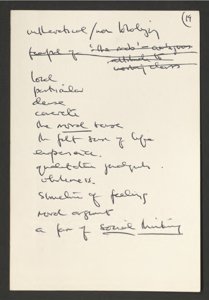 (14
untheoretical / non ideology
people of 'the mob' -
attitude to
working class
local
particular
dense
concrete
the moral sense
the felt sense of life
experience.
qualitative judgments.
wholeness.
structure of feeling
moral argument
a form of social thinking